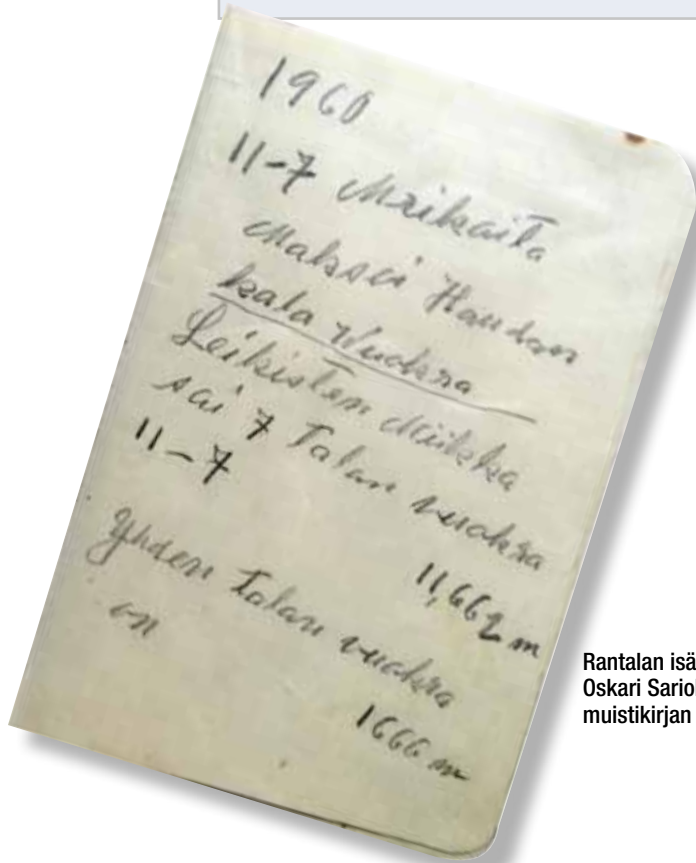 1960
11-7 Meikaita
Maksoi Haudan
kala Vuokra
Leikisten Miikka
sai 7 Talan vuokra
11-7
11,662 m
Yhden Talan vuokra
on
1666 m
Rantalan isä
Oskari Sariol
muistikirjan